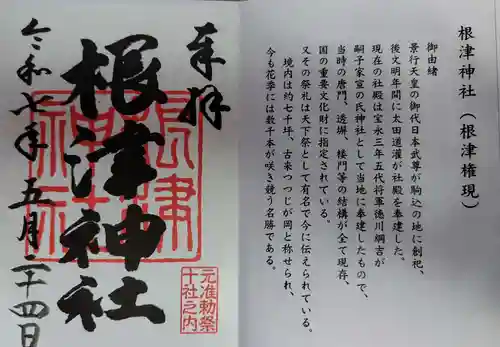 根津神社(根津権現)
御由緒
景行天皇の御代日本武尊が駒込の地に創祀、
後文明年間に太田道灌が社殿を奉建した。
現在の社殿は宝永三年五代将軍徳川綱吉が
嗣子家宣の氏神社として当地に奉建したもので、
当時の唐門、透塀、楼門等の結構が全て現存、
国の重要文化財に指定されている。
又その祭礼は天下祭として有名で今に伝えられている。
境内は約七千坪、古来つつじが岡と称せられ、
今も花季には数千本が咲き競う名勝である。
奉拝
根津神社
根津神社
元准勅祭
十社之内
令和七年五月二十四日